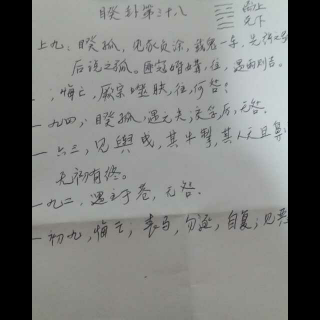 睽卦第三十八 离上
兑下
上九：睽孤，见豕负涂，载鬼一车，先张之弧
后说之弧。匪寇婚媾，往，遇雨则吉。
；悔亡，厥宗噬肤，往，何咎？
一九四：睽孤，遇元夫，交孚，厉，无咎。
一六三，见舆曳，其牛掣，其人天且劓
无初有终。
一九二，遇主于巷，无咎。
一初九，悔亡；丧马，勿逐，自复；见恶